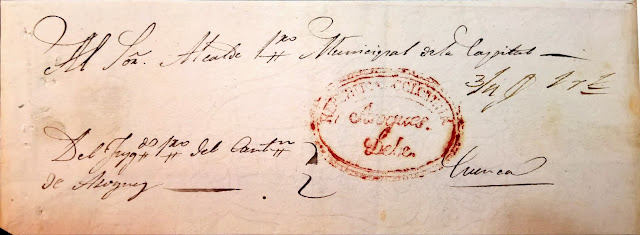 Al Sor. Alcalde 1ro Municipal de la Capital
REPUBLICA
Azogues.
Debe.
Del Juzgdo 1ro del Cantn
de Azogues
Cuenca